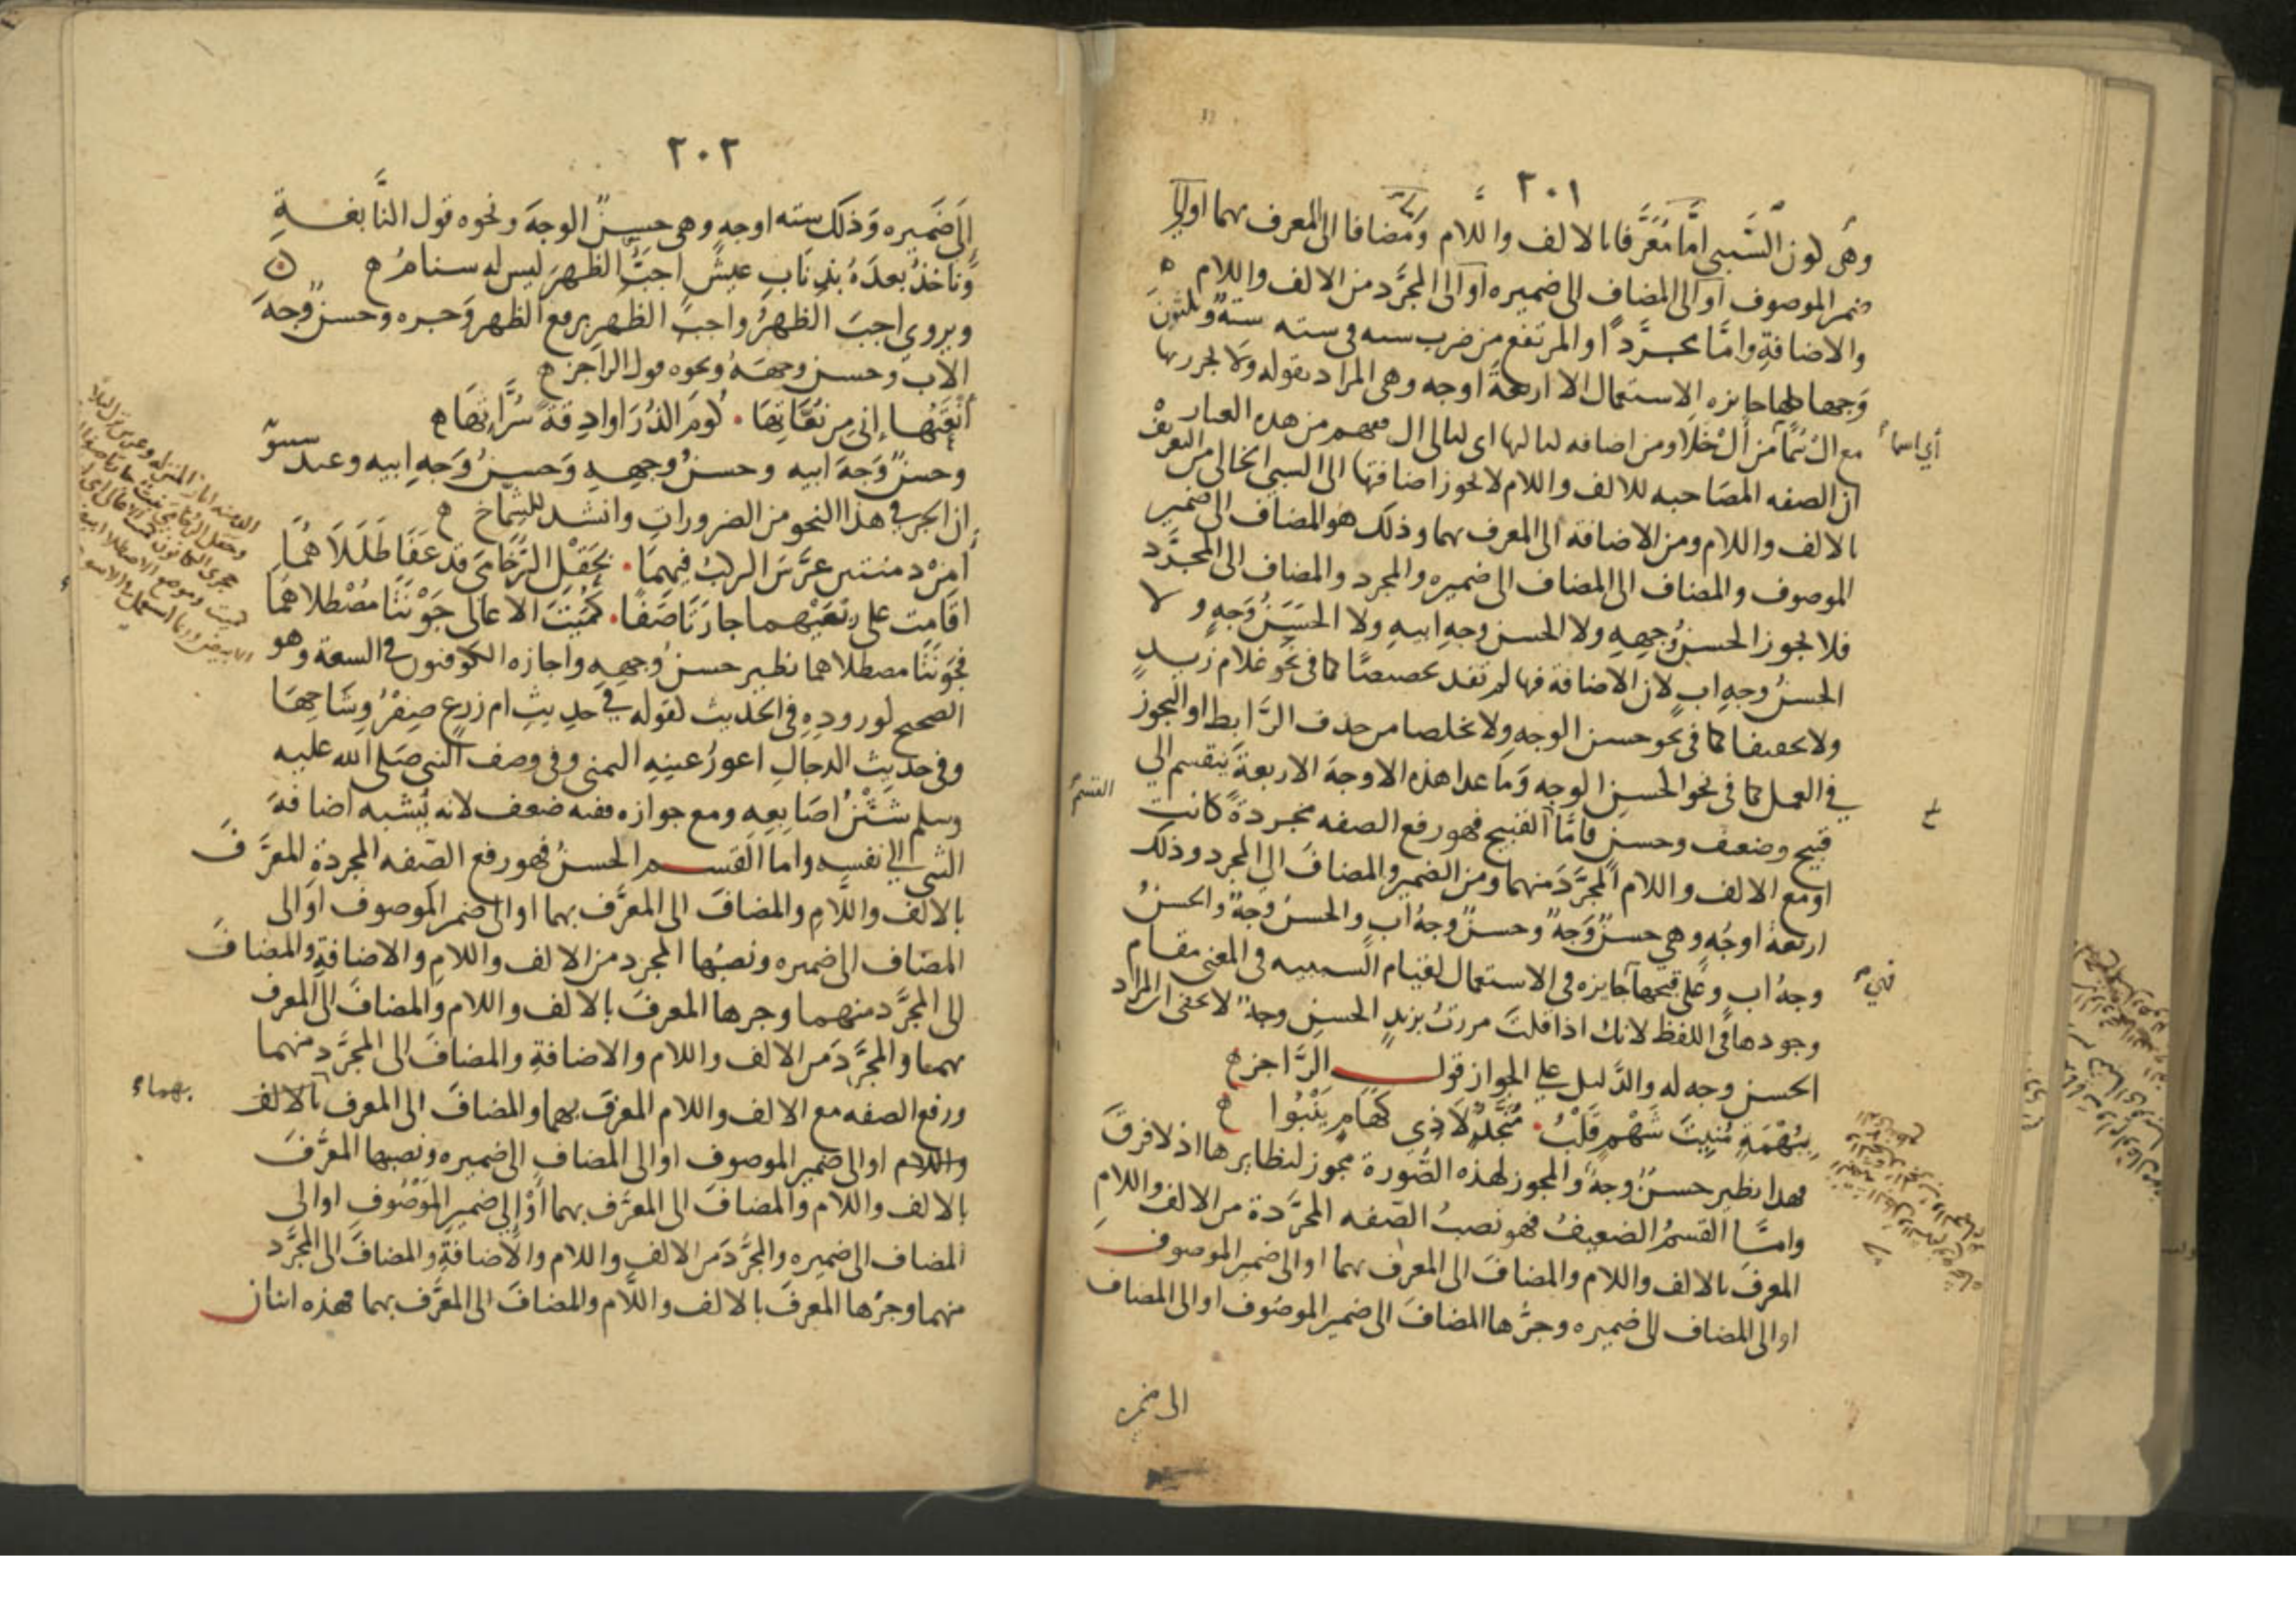 ٢٠١
وهى كون السَّببى امَّا مُعَرَّفا بالالف واللَّام ومضافا الى المعرف بهما او الى
ضمير الموصوف او الى المضاف الى ضميره او الى المجرَّد من الالف واللام
والاضافةِ وامَّا مجرَّدًا والمرتفع من ضرب سته فى سته ستةٌ وثلثون
وَجها كلها جايزه الاستعمال الا اربعةَ اوجه وهى المراد بقوله ولا تجرر بها
مع ال سُمًا مِن أَلْ خَلَا ومن اضافه لتاليها اى لتالى ال فهم من هذه العباره
ان الصفه المصَاحبه للالف واللام لا يجوز اضافتها الى السببى الخالى من التعريف
بالالف واللام ومن الاضافة الى المعرف بهما وذلك هو المضاف الى ضمير
الموصوف والمضاف الى المضاف الى ضميره والمجرد والمضاف الى المجرَّد
فلا يجوز الحسنُ وجهِهِ ولا الحسن وجهِ ابيهِ ولا الحسَنُ وَجهٍ ولا
الحسنُ وجهِ ابٍ لان الاضافة فيها لم تفد تخصيصًا كما فى نحو غلام زيدٍ
ولا تخفيفا كما فى نحو حسن الوجهِ ولا تخلصا من حذف الرَّابط او التجوز
في العمل كما فى نحو الحسنِ الوجهِ وَما عدا هذه الاوجهَ الاربعةَ ينقسم الي
قبيح وضعيف وحسن فامَّا القبيح فهو رفع الصفه مجردةً كانت
او مع الالف واللام المجرَّدَ منهما ومن الضمير والمضافَ الى المجرد وذلك
اربعةُ اوجُهٍ وهي حسنٌ وَجهٌ وحسنٌ وجهُ ابٍ والحسنُ وجهٌ والحسنُ
وجهُ اب وعَلى قبحها جايزه فى الاستعمال لقيام السببيه فى المعنى مقام
وجودها فى اللفظ لانك اذا قلتَ مررتُ بزيدٍ الحسنِ وجهٌ لا يخفى ان المراد
الحسن وجه له والدَّليل على الجواز قول الرَّاجز
بِبُهْمَةٍ مُنِيتَ شَهْمٍ قَلْبُ · مُنَجَّذٍ لَا ذِي كَهَامٍ يَنْبُوا
فهذا نظير حسنٌ وجهٌ والمجوز لهذه الصُّورة مجوز لنظايرها اذ لا فرقَ
وامَّا القسمُ الضعيفُ فهو نصبُ الصّفه المجرَّدة من الالف واللامِ
المعرفَ بالالف واللام والمضافَ الى المعرف بهما او الى ضمير الموصوف
او الى المضاف الى ضميره وجرُّها المضافَ الى ضمير الموصُوف او الى المضاف
الى ضميره
أي اسما
القسم
فهي
٢٠٢
إلى ضَميره وَذلك سته اوجهٍ وهى حسنٌ الوجهَ ونحوه قول النَّابغةِ
وَنَاخذُ بعدَهُ بذِنَابِ عيشٍ اجبَّ الظهرَ ليس له سنامُ
ويروى اجبَّ الظهرُ واجبِّ الظهرِ برفع الظهر وَجره وحسنٌ وجهَ
الاب وحسن وجهَهُ ونحوه قول الراجز
أَنْعَتُها إنى مِن نُعَّاتِهَا · كُومَ الذُّرَا وادِقَةً سُرَّاتِهَا
وحسنٌ وَجهَ ابيه وحسنُ وجهِهِ وَحسنُ وَجهِ ابيه وعند سيبويه
ان الجر فى هذا النحو من الضرورات وانشد للشماخ
أَمِنْ دمنتين عرَّسَ الركبُ فِيهِمَا · بحَقْلِ الرُّخَامَى قد عَفَا طَلَلَاهُمَا
اقَامت على رَبْعَيْهما جارَتَا صَفًا · كُمَيْتَا الاعالى جَوْنَتَا مُصْطلاهُمَا
فجَونَتَا مصطلاهما نظير حسنُ وجهِهِ واجازه الكوفيون فى السعة وهو
الصحيح لوروده فى الحديث كقوله في حديثِ ام زرعٍ صِفْرُ وِشَاحِهَا
وفى حديث الدجالِ اعورُ عينِهِ اليمنى وفى وصف النبي صَلى الله عليه
وسلم شَثْنُ اصَابِعِه ومع جوازه ففيه ضعف لانه يُشبه اضافةَ
الشى الي نفسه واما القسم الحسنُ فهو رفع الصّفه المجردةِ المعرَّفَ
بالالف واللَّامِ والمضافَ الى المعرَّف بهما او الى ضمير الموصوف او الى
المضاف الى ضميره ونصبُها المجرد من الالف واللامِ والاضافةِ والمضافَ
الى المجرَّد منهما وجرها المعرفَ بالالف واللام والمضافَ الى المعرف
بهما والمجرَّدَ من الالف واللام والاضافةِ والمضافَ الى المجرَّد منهما
ورفع الصفه مع الالف واللام المعرفَ بهما والمضافَ الى المعرف بالالف
واللام او الى ضمير الموصوف او الى المضاف الى ضميره ونصبها المعرَّفَ
بالالف واللام والمضافَ الى المعرَّف بهما أوْ إلى ضميرِ الموْصُوف او الى
المضاف الى ضميره والمجرَّدَ من الالف واللام والاضافةِ والمضافَ الى المجرَّد
منهما وجرُها المعرفَ بالالف واللَّام والمضافَ الى المعرَّف بهما فهذه اثنان
بهما